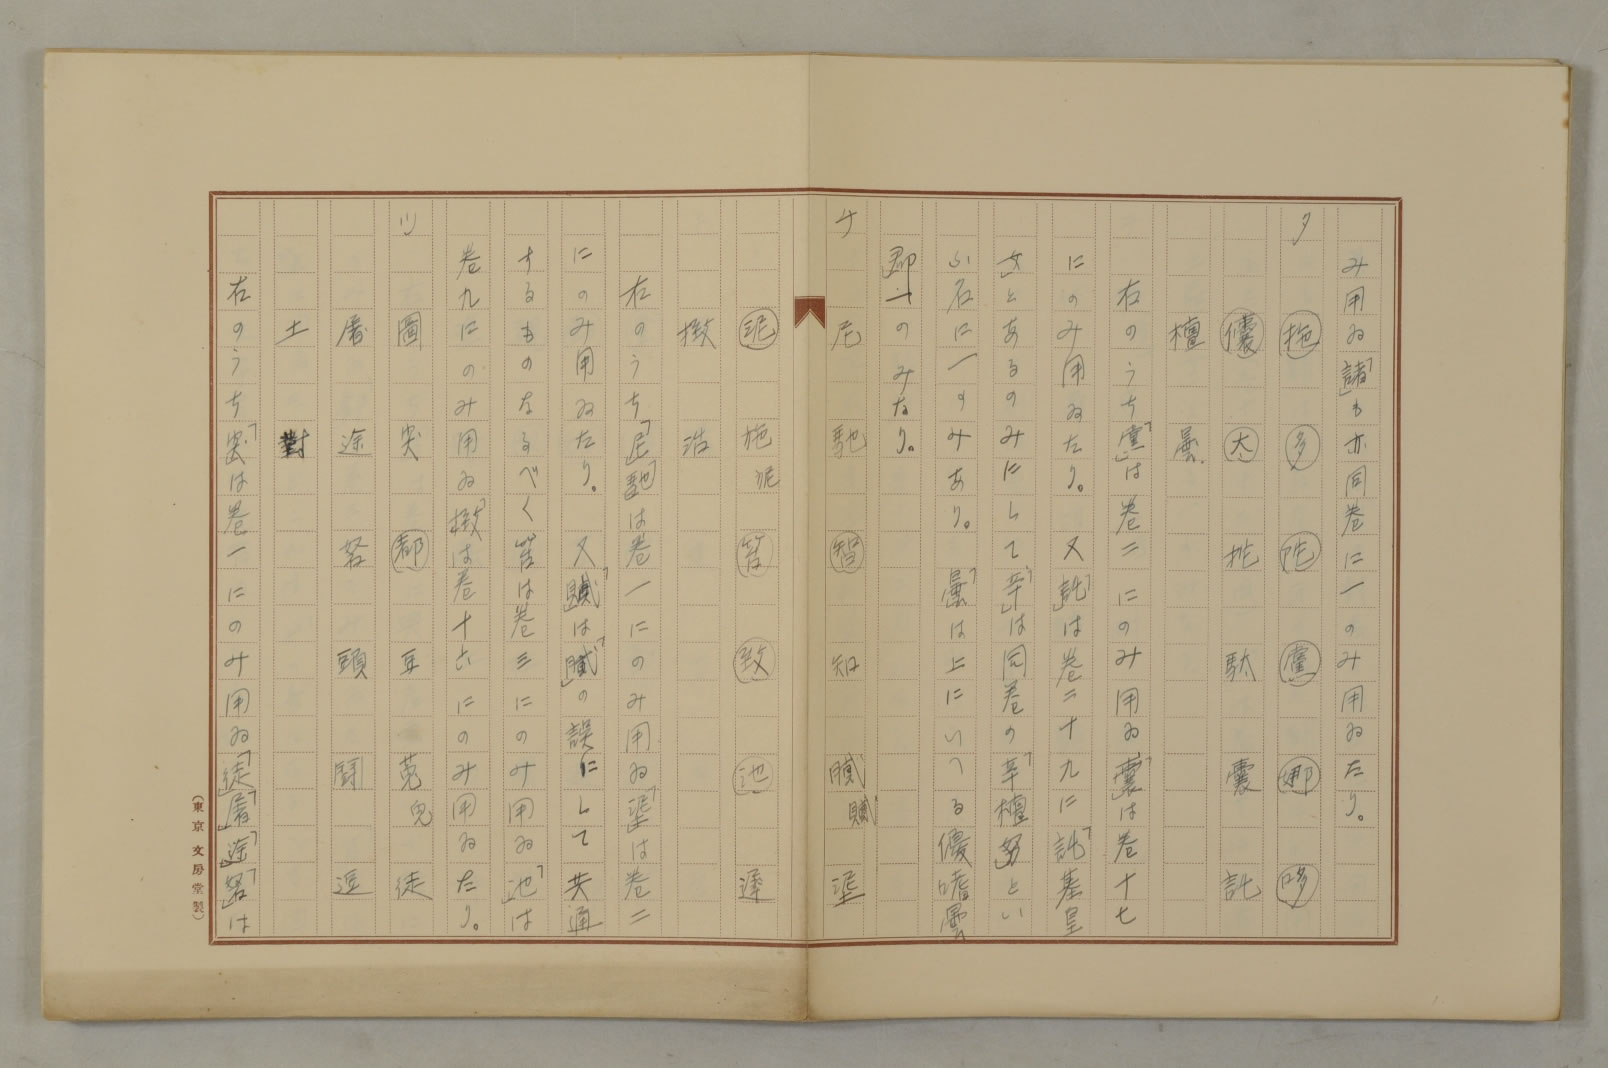 み用ゐ「諸」も亦同巻に一のみ用ゐたり。
タ 拖 多 陀 黨 娜 哆
儾 太 拕 駄 囊 託
檀 曇
右のうち「黨」は巻二にのみ用ゐ「囊」は巻十七
にのみ用ゐたり。又「託」は巻二十九に「託基皇
女」とあるのみにして「辛」は同巻の「辛檀努」とい
ふ石に一すみあり。「曇」は上にいへる優嗜曇
郡一のみなり。
チ 尼 馳 智 知 膩 贓 埿
泥 施 泥 笞 致 池 遲
撴 治
右のうち「尼」「馳」は巻一にのみ用ゐ「埿」は巻二
にのみ用ゐたり。又「贓」は「膩」の誤にして共通
するものなるべく「笞」は巻三にのみ用ゐ「池」は
巻九にのみ用ゐ「撴」は巻十六にのみ用ゐたり。
ツ 圖 突 都 豆 菟 兜 徒
屠 途 努 頭 鬪 逗
土 對
右のうち「突」は巻一にのみ用ゐ「徒」「屠」「途」「努」は
(東京 文房堂製)